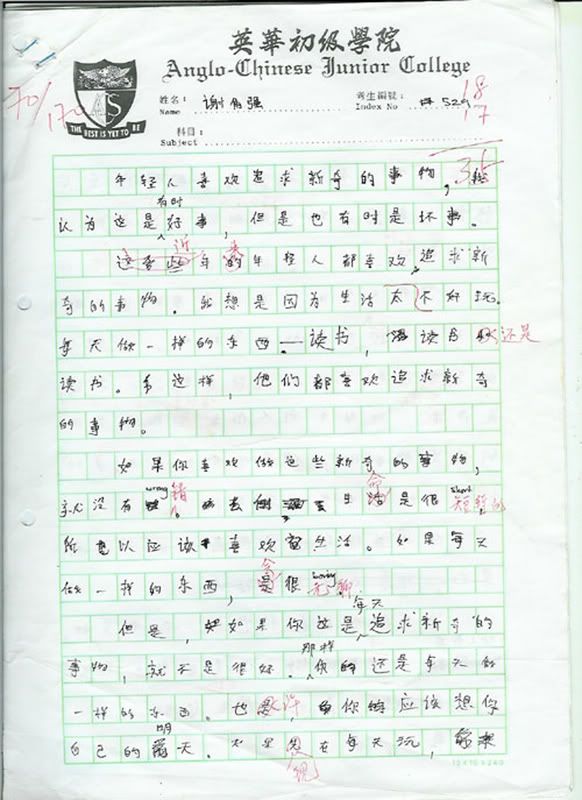 英華初級學院
Anglo-Chinese Junior College
70/170
姓名：
Name
谢
强
考生編號：
Index No
# 529
18
17
35
THE BEST IS YET TO BE
科目：
Subject
年轻人喜欢追求新奇的事物，
有时
认为这是好事，但是也有时是坏事。
近 来
这些年的年轻人都喜欢追求新
奇的事物。我想是因为生活太不好玩。
每天做一样的东西——读书，读书 还是
读书。这样，他们都喜欢追求新奇
的事物。
如果你喜欢做这些新奇的事物，
wrong 错 命 short
就没有。生活是很短暂的
所以应该喜欢生活。如果每天
会 boring
做一样的东西，是很无聊
每天
但是，如果你这是追求新奇的
那样
事物，就不是很好。你的还是每天做
一样的东西。也许，你应该想你
明
自己的天。在每天玩，
现